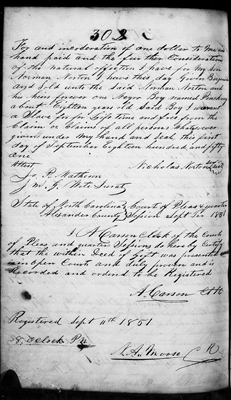 302
For and inconsideration of one dollar to me in
hand paid and the further Consideration
of the Natural affection I have for My Son
Norman Norton I have this day Given Bargained
and Sold unto the Said Norman Norton and
his heirs forever one Negro Boy named
about Eighteen years old Said Boy I warrant
a Slave for for Life time and free from the
Claim or Claims of all persons Whatsoever
given under My hand and Seal this first
day of September Eighteen hundred and fifty
one
Attest Nicholas Norton
J. P. Matheson
J. M. G.
State of North Carolina Court of Pleas & quarter
Alexander County Session Sept Term 1851
I A Carson Clerk of the Court
of Pleas and quarter Sessions do hereby Certify
that the within Deed of Gift was presented
in open Court and duly proven and is
recorded and ordered to be Registered
A. Carson Clk
Registered Sept 11th 1851
8 oclock P.M.